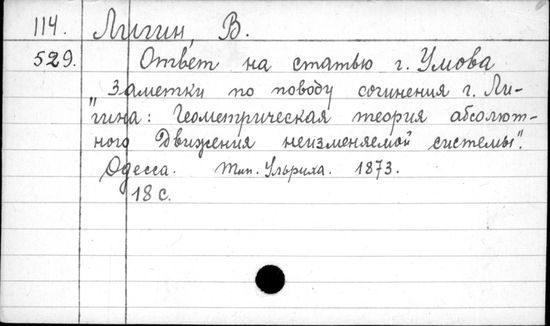 114. Лигин, В.
529. Ответ на статью г. Умова
„Заметки по поводу сочинения г. Ли-
гина: Геометрическая теория абсолют-
ного движения неизменяемой системы".
Одесса. тип. Ульриха. 1873.
18 с.